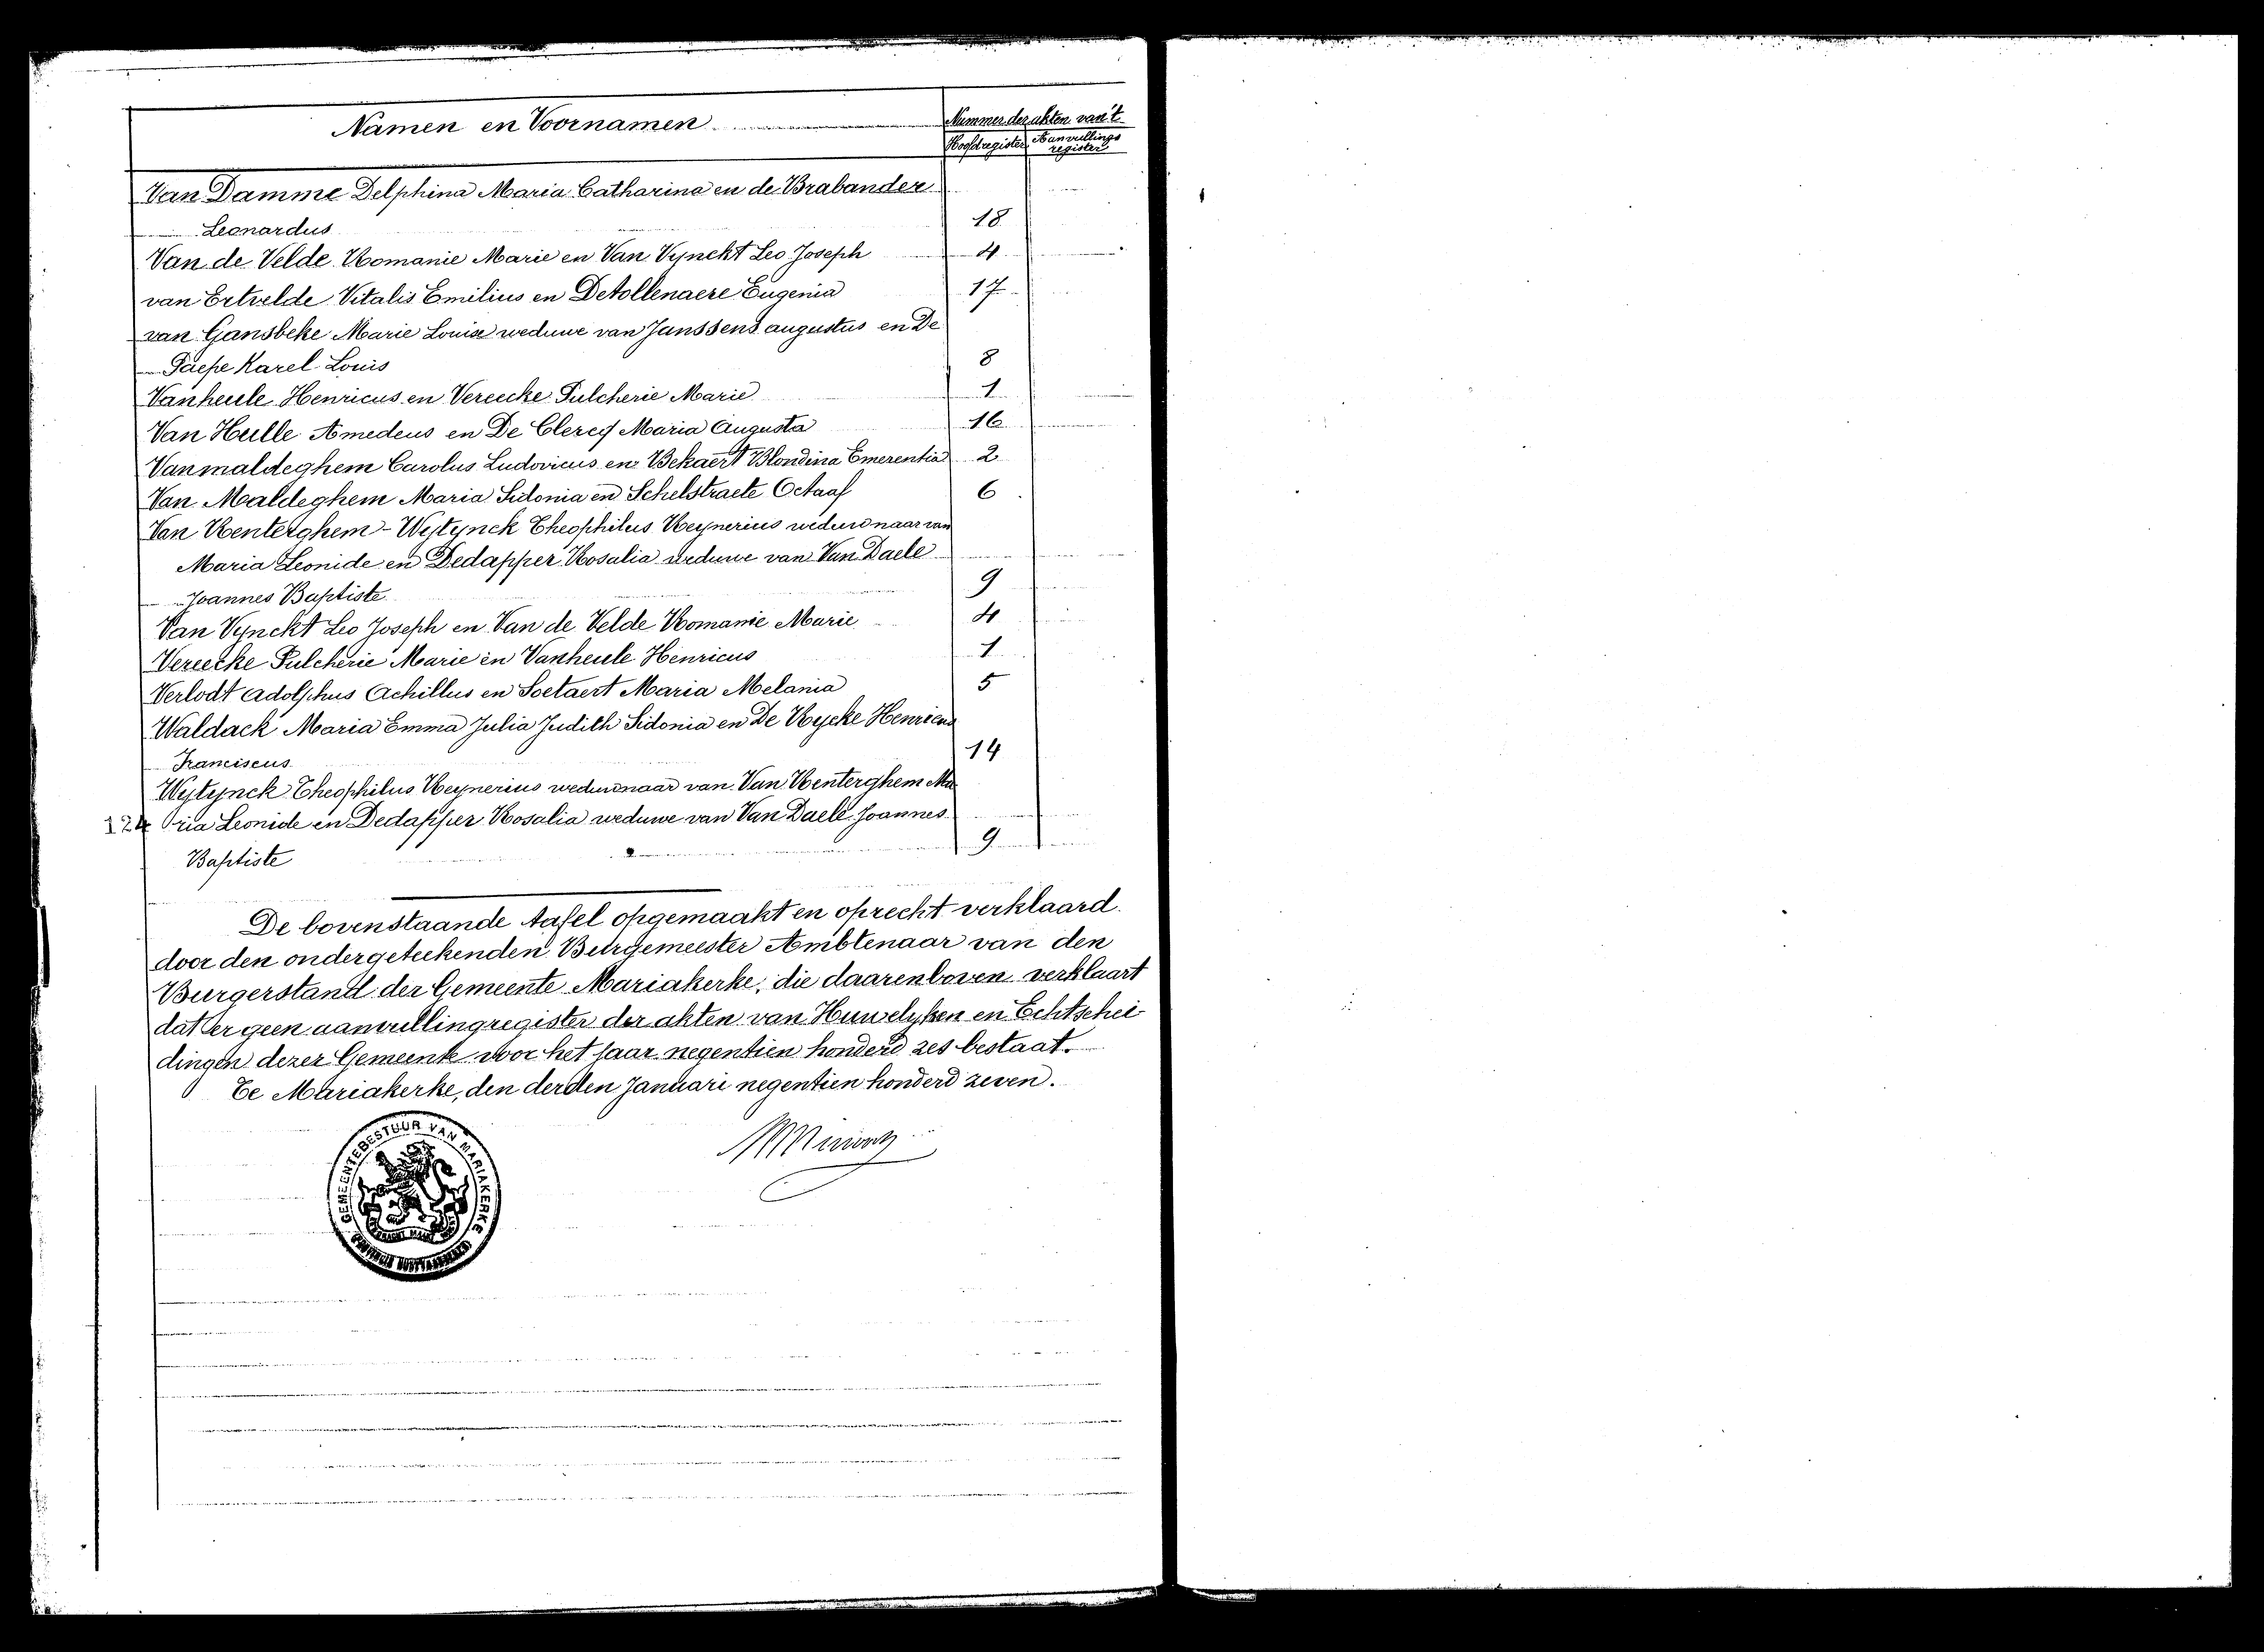 Namen en Voornamen
Nummer der akten van't
Hoofdregister
Aanvullings
register
Van Damme Delphina Maria Catharina en de Brabander
Leonardus 18
Van de Velde Romanie Marie en Van Vynckt Leo Joseph 4
van Ertvelde Vitalis Emilius en Detollenaere Eugenia 17
van Gansbeke Marie Louise weduwe van Janssens augustus en De
Paepe Karel Louis 8
Vanheule Henricus en Vereecke Pulcherie Marie 1
Van Hulle Amedeus en De Clercq Maria Augusta 16
Vanmaldeghem Carolus Ludovicus en Bekaert Blondina Emerentia 2
Van Maldeghem Maria Sidonia en Schelstraete Octaaf 6
Van Renterghem - Wytynck Theophilus Reynerius weduwnaar van
Maria Leonide en Dedapper Rosalia weduwe van Van Daele
Joannes Baptiste 9
Van Vynckt Leo Joseph en Van de Velde Romanie Marie 4
Vereecke Pulcherie Marie en Vanheule Henricus 1
Verlodt Adolphus Achillus en Soetaert Maria Melania 5
Waldack Maria Emma Julia Judith Sidonia en De Rycke Henricus
Franciscus 14
Wytynck Theophilus Reynerius weduwnaar van Van Renterghem Ma
124 ria Leonide en Dedapper Rosalia weduwe van Van Daele Joannes
Baptiste 9
De bovenstaande tafel opgemaakt en oprecht verklaard
door den ondergeteekenden Burgemeester Ambtenaar van den
Burgerstand der Gemeente Mariakerke, die daarenboven verklaart
dat er geen aanvullingregister der akten van Huwelyken en Echtschei-
dingen dezer Gemeente voor het jaar negentien honderd zes bestaat.
Te Mariakerke, den derden Januari negentien honderd zeven.
GEMEENTEBESTUUR VAN MARIAKERKE